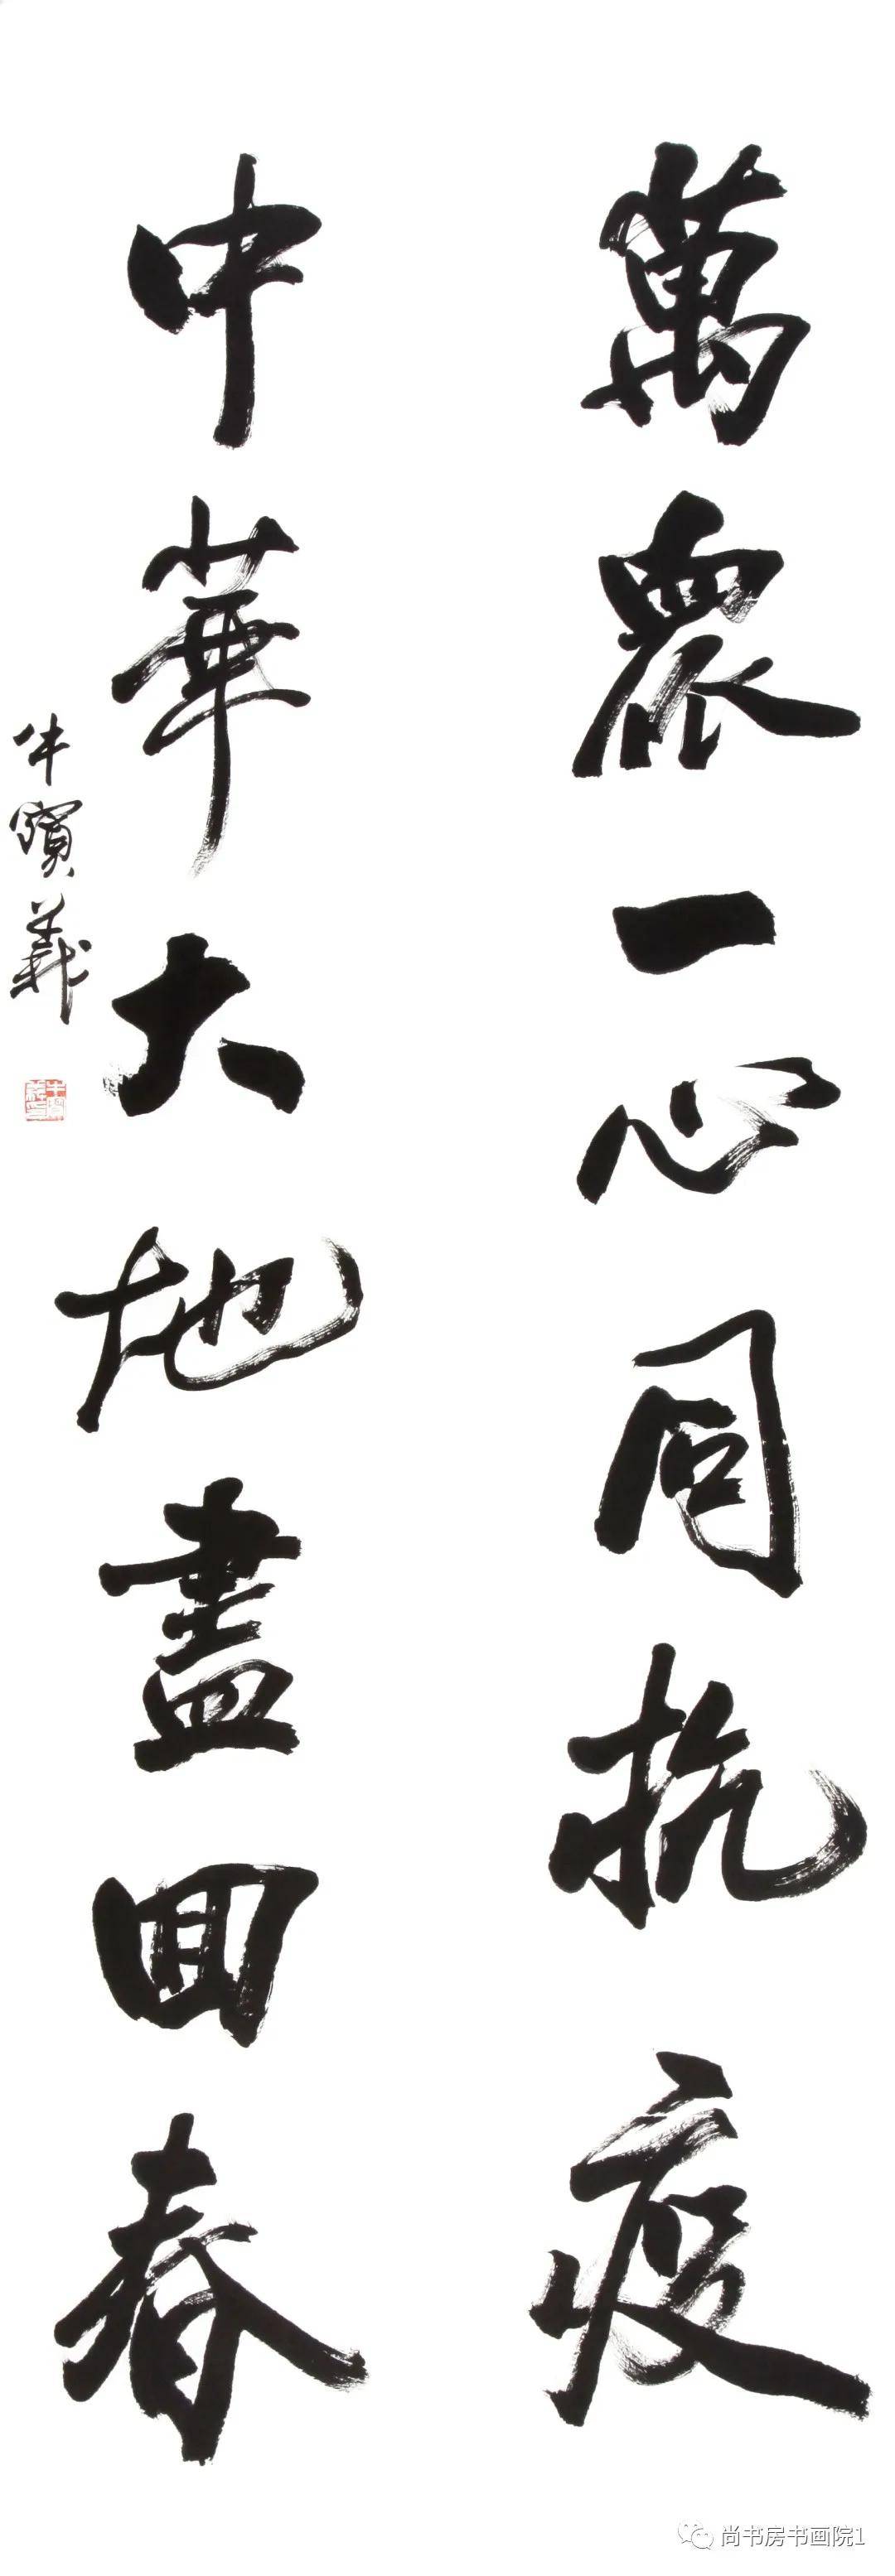 萬衆一心同抗疫
中華大地盡回春
牛寶義
尚书房书画院1